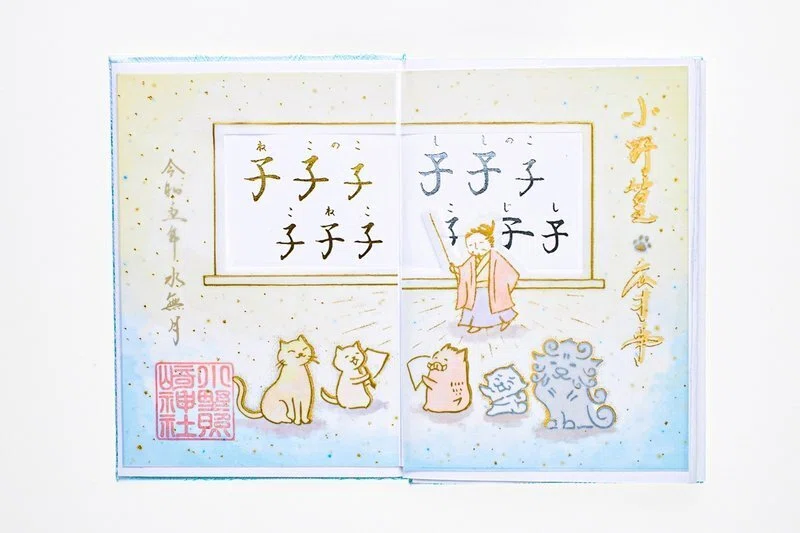 小野篁 広才事
ね こ の こ
子 子 子
こ ね こ
子 子 子
し し の こ
子 子 子
こ じ し
子 子 子
令和五年 水無月
小野照
崎神社